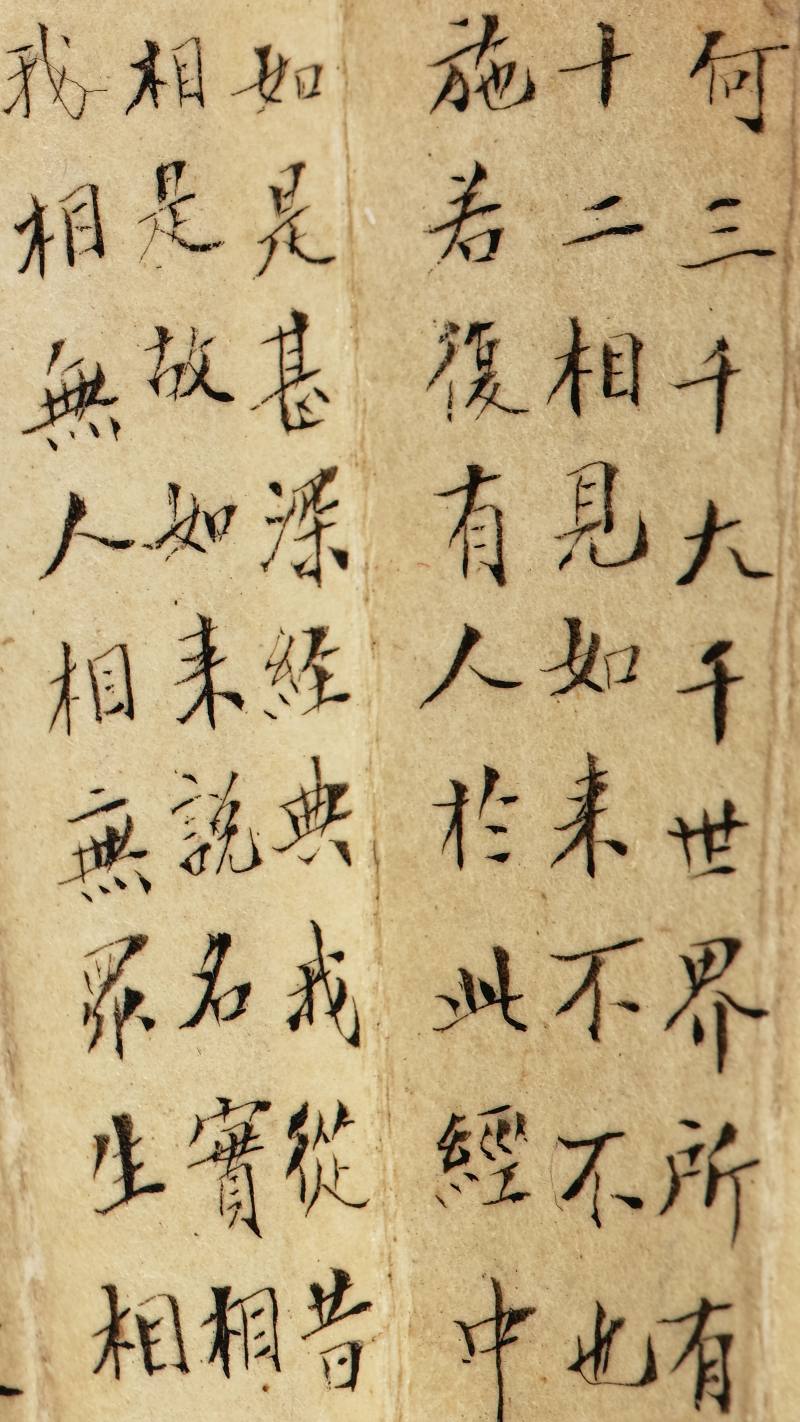 何三千大千世界所有
十二相見如来不不也
施若復有人於此經中
如是甚深経典我從昔
相是故如来説名實相
我相無人相無眾生相